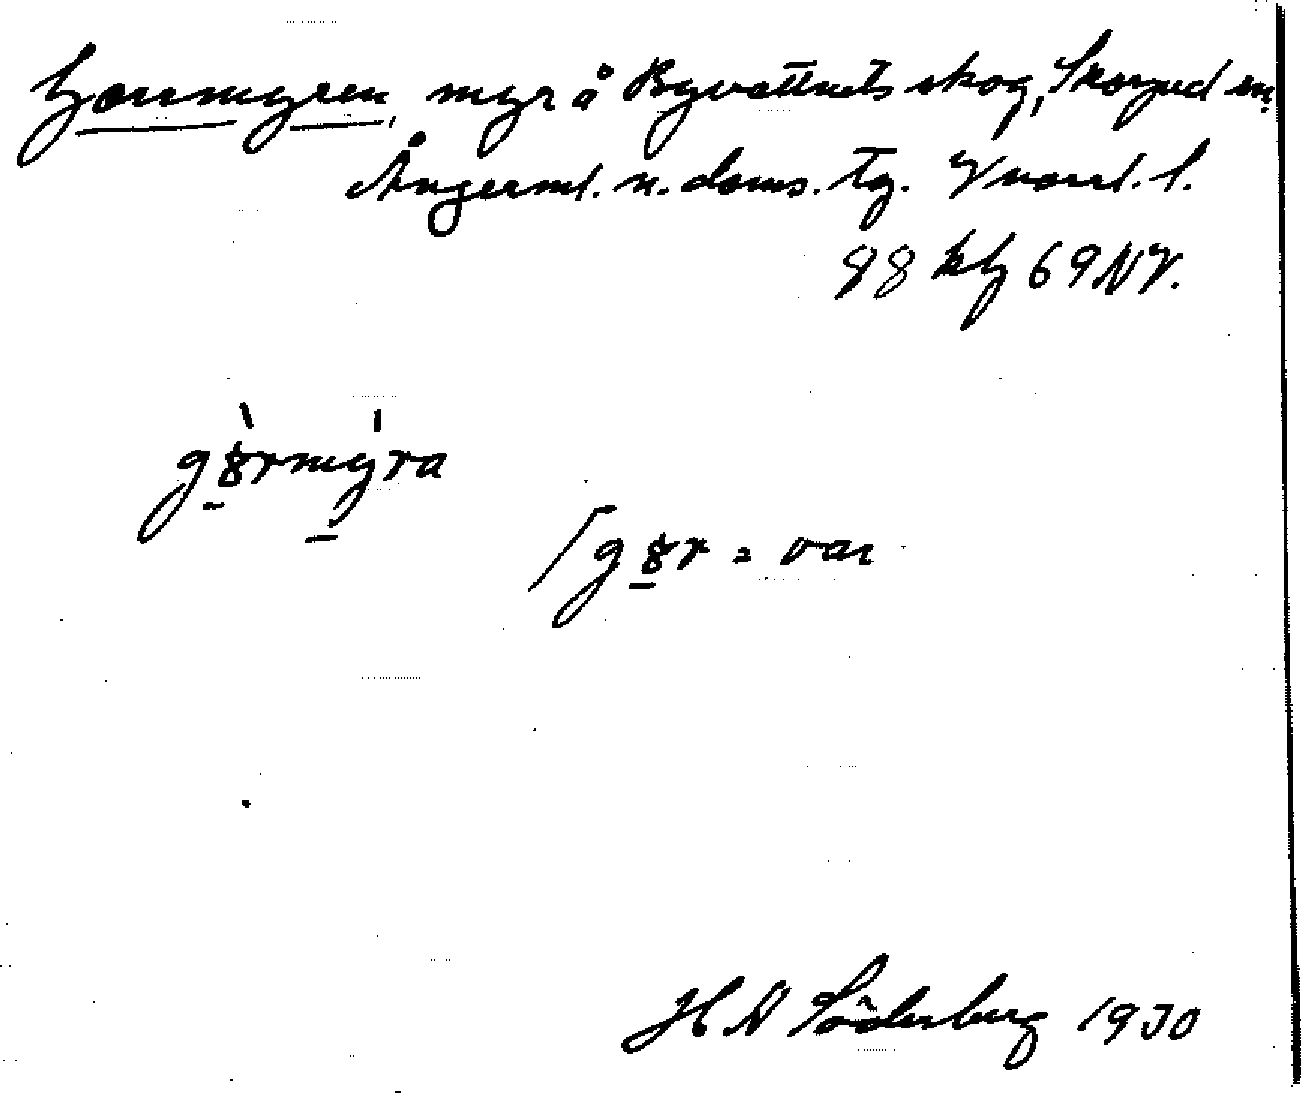 Gormyren, myr å Byvattnets skog, Skorped sn
Ångerml. n. doms. tg. Vnorrl. l.
98 kf 69 NV.
gȣrmyra
/gȣr = var
H N Söderberg 1930